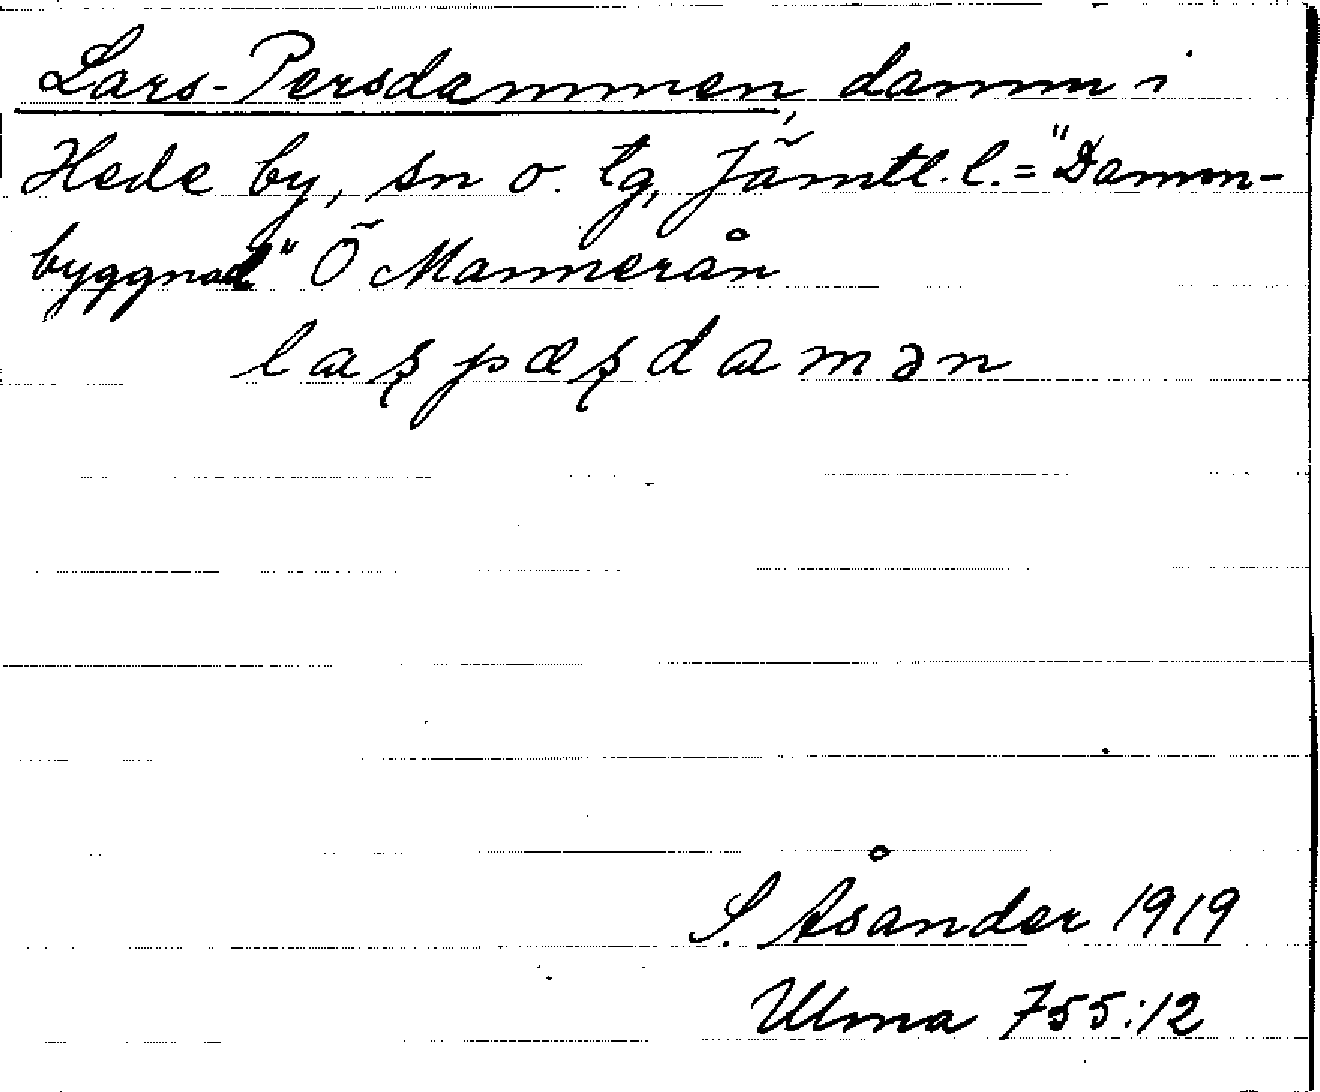 Lars-Persdammen, damm i
Hede by, sn o. tg, Jämtl. l. = "Damm-
byggnad" Ö Mannerån
laʂpæʂdamən
S. Åsander 1919
Ulma 755:12